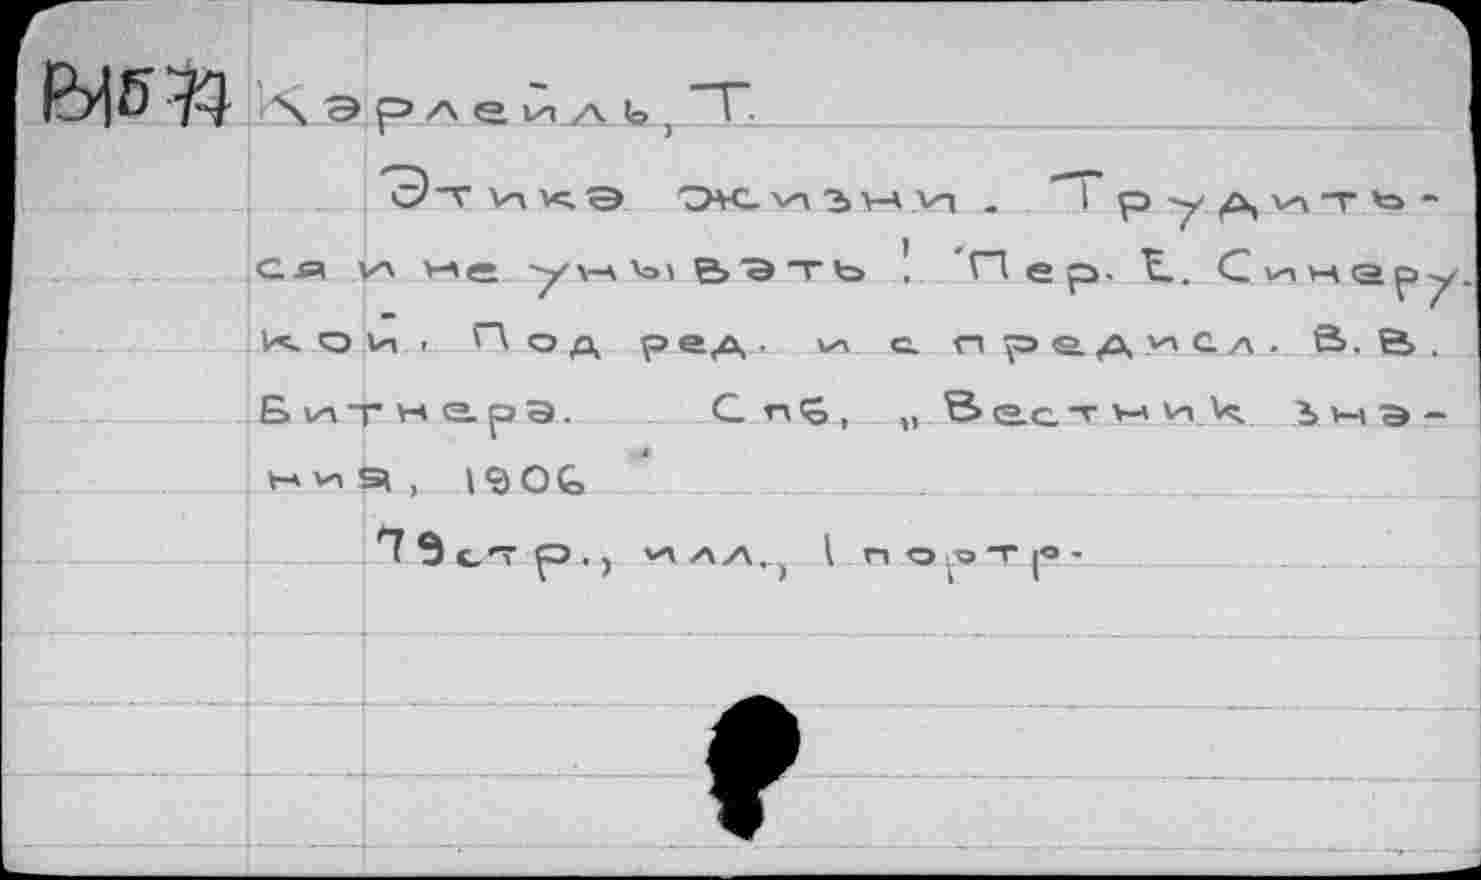 Карлейль, Т.
Этика жизни. Трудить-
ся и не унывать! Пер. Е. Синеру-
кой. Под ред. и с предисл. В. В.
Битнера. Спб, „Вестник Зна-
ния, 1906
79 стр., илл., 1 портр.